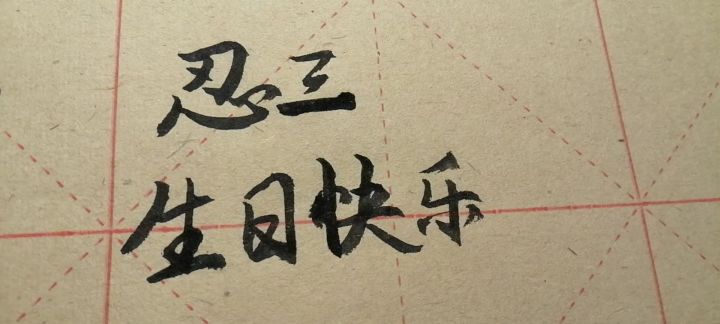 忍三
生日快乐